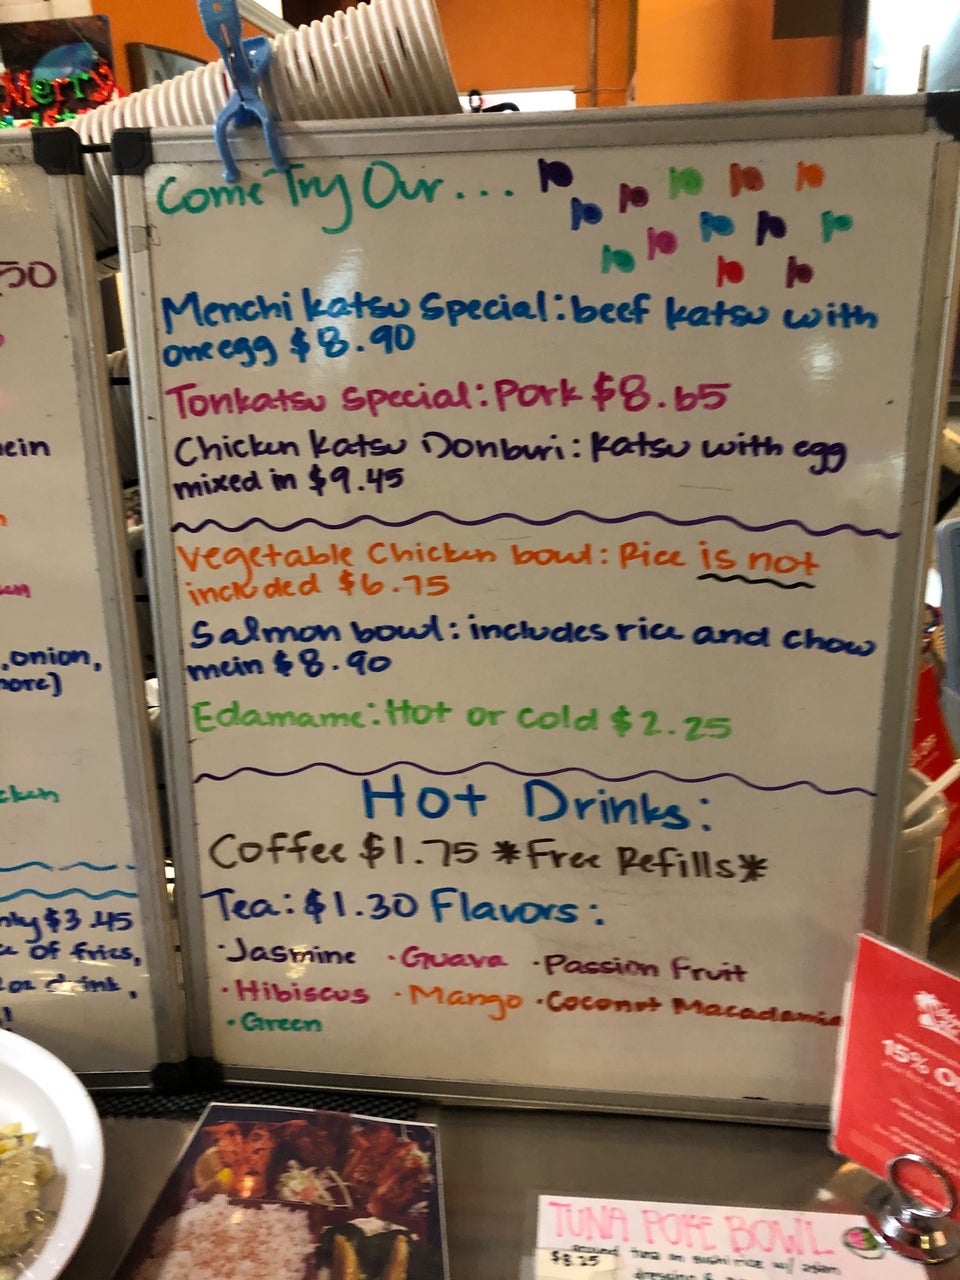 Merry
Come Try Our...
Menchi katsu Special: beef katsu with
one egg $8.90
Tonkatsu Special: Pork $8.65
Chicken katsu Donburi: katsu with egg
mixed in $9.45
Vegetable Chicken bowl: Rice is not
included $6.75
Salmon bowl: includes rice and chow
mein $8.90
Edamame: Hot or cold $2.25
Hot Drinks:
Coffee $1.75 *Free Refills*
Tea: $1.30 Flavors:
·Jasmine ·Guava ·Passion Fruit
·Hibiscus ·Mango ·Coconut Macadamia
·Green
50
mein
,onion,
more)
cken
nly $3.45
of fries,
drink,
15% O
TUNA POKE BOWL
$8.25 tuna on sushi rice w/ asian
dressing &